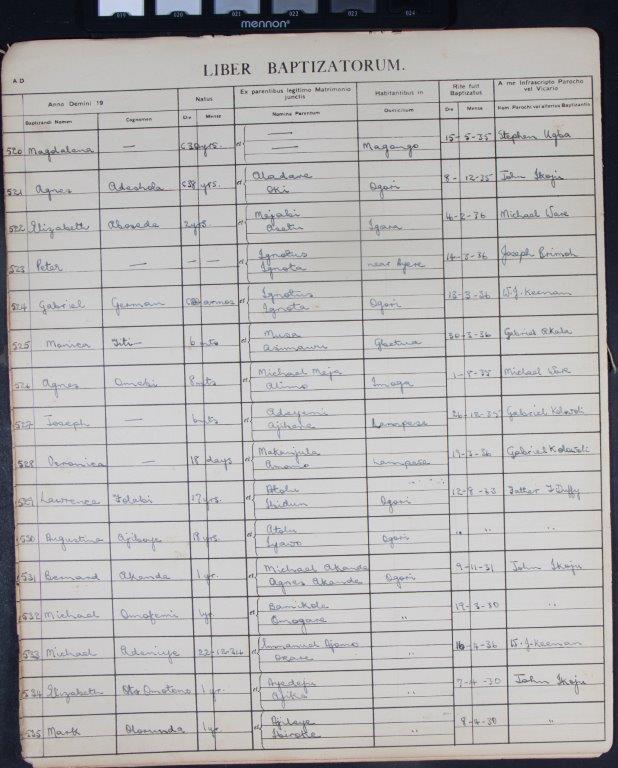 019 020 021 022 023 024
mennon
LIBER BAPTIZATORUM.
A D
Anno Domini 19 Natus Ex parentibus legitimo Matrimonio junctis Habitantibus in Rite fuit Baptizatus A me Infrascripto Parocho vel Vicario
Baptizandi Nomen Cognomen Die Mense Nomina Parentum Domicilium Die Mense Nom. Parochi vel alterius Baptizantis
520 Magdalena — c 30 yrs. et { — Magongo 15-5-35 Stephen Ugba
—
521 Agnes Adeshola c 38 yrs. et { Aladare Ogori 8-12-35 John Ikoju
Oki
522 Elizabeth Abosede 2 yrs. et { Mejabi Igara 4-2-36 Michael Ware
Asetu
523 Peter — — — et { Ignotus near Ayere 14-3-36 Joseph Brimoh
Ignota
524 Gabriel German annos et { Ignotus Ogori 13-3-36 W.J. Keenan
Ignota
525 Monica Titi— 6 mts et { Musa Gbetua 30-3-36 Gabriel
Asimawu
526 Agnes Omeki 8 mts et { Michael Meja Imoga 1-8-35 Michael Ware
Alimo
527 Joseph — 6 mts et { Adeyemi Lampese 26-12-35 Gabriel Kolawoli
Ajihene
528 Veronica — 18 days et { Makanjula Lampese 19-3-36 Gabriel Kolawoli
Amamo
529 Lawrence Folabi 17 yrs. et { Atolu Ogori 12-8-33 Father F Duffy
Ibidun
530 Augustina Ajiboye 18 yrs. et { Atolu Ogori " " "
Iyawo
531 Bernard Akande 1 yr. et { Michael Akande Ogori 9-11-31 John Ikoju
Agnes Akande
532 Michael Omofemi 1 yr et { Bamikole " 19-3-30 "
Omogare
533 Michael Adeniye 22-12-34 et { Emmanuel Ajomo " 16-4-36 W.J. Keenan
Okare
534 Elizabeth Omotono 1 yr. et { Ayedeju " 7-4-30 John Ikoju
Ajike
535 Mark Olorunda 1 yr et { Ajileye " 8-4-30 "
Ibironke